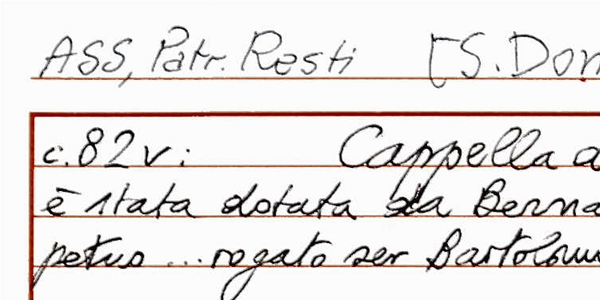 ASS, Patr. Resti [S. Dom
c. 82v: Cappella a
è stata dotata da Berna
petus ... rogato ser Bartolom